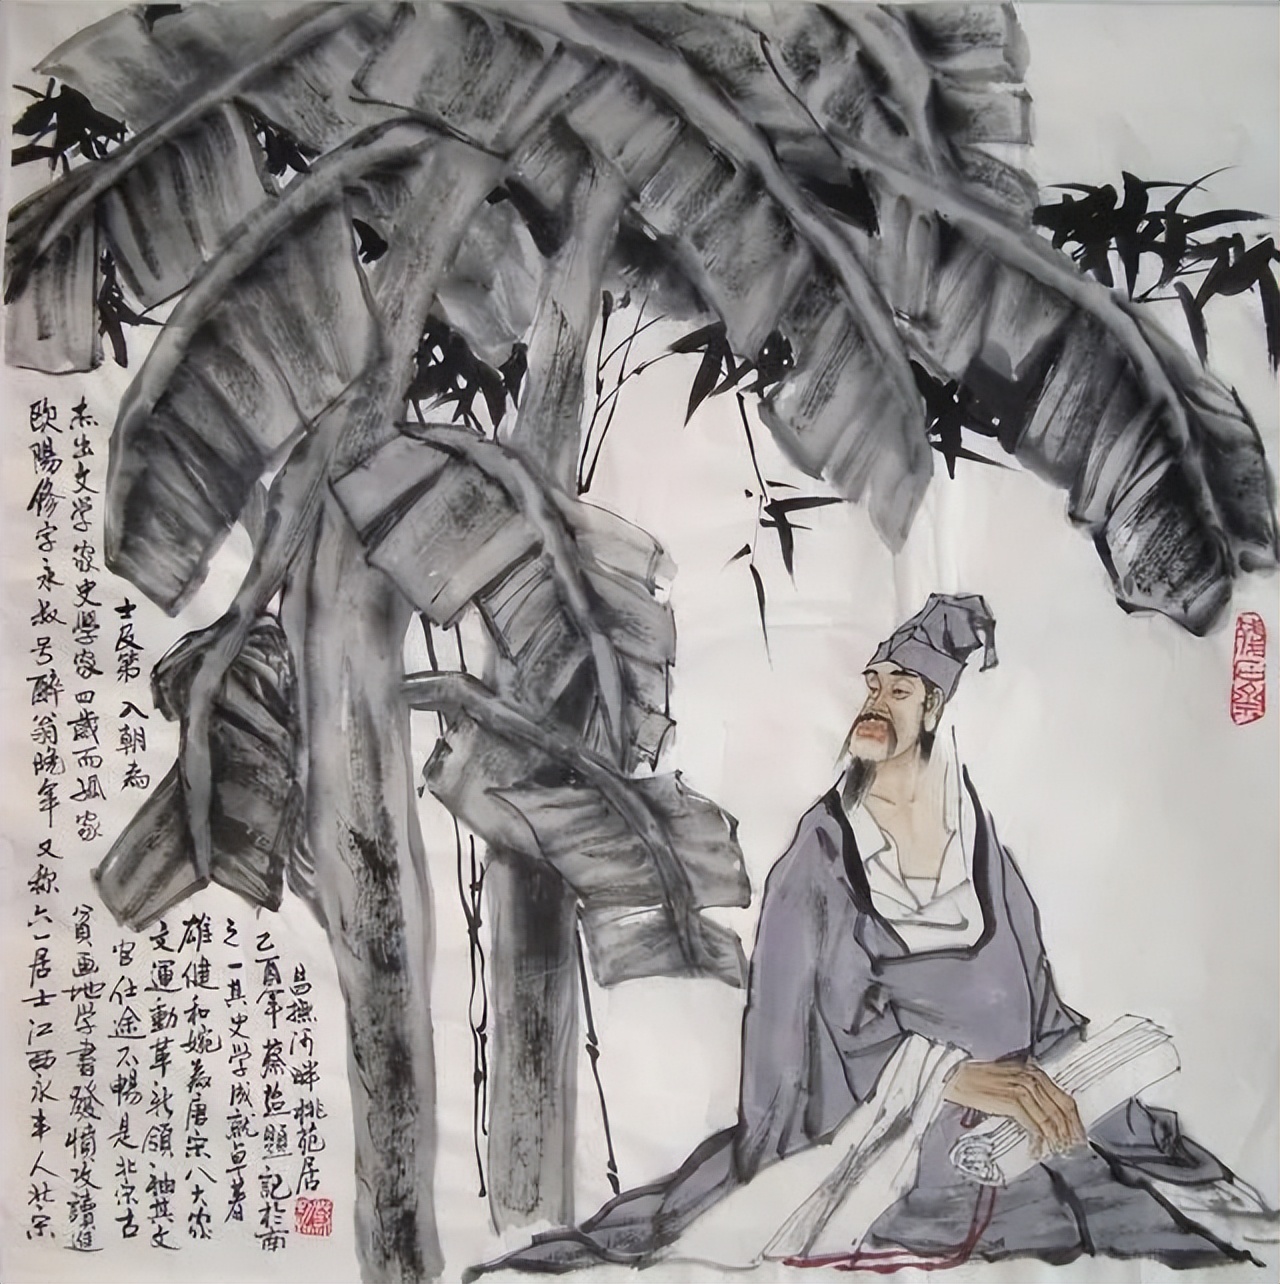 歐陽修字永叔号醉翁晚年又称六一居士江西永丰人北宋
杰出文学家史學家四歲而孤家貧画地学書發憤攻讀進
士及第入朝為官仕途不暢是北宋古
文運動革新領袖其文
雄健和婉為唐宋八大家
之一其史学成就卓著
乙酉年蔡題記於南
昌撫河畔桃苑居